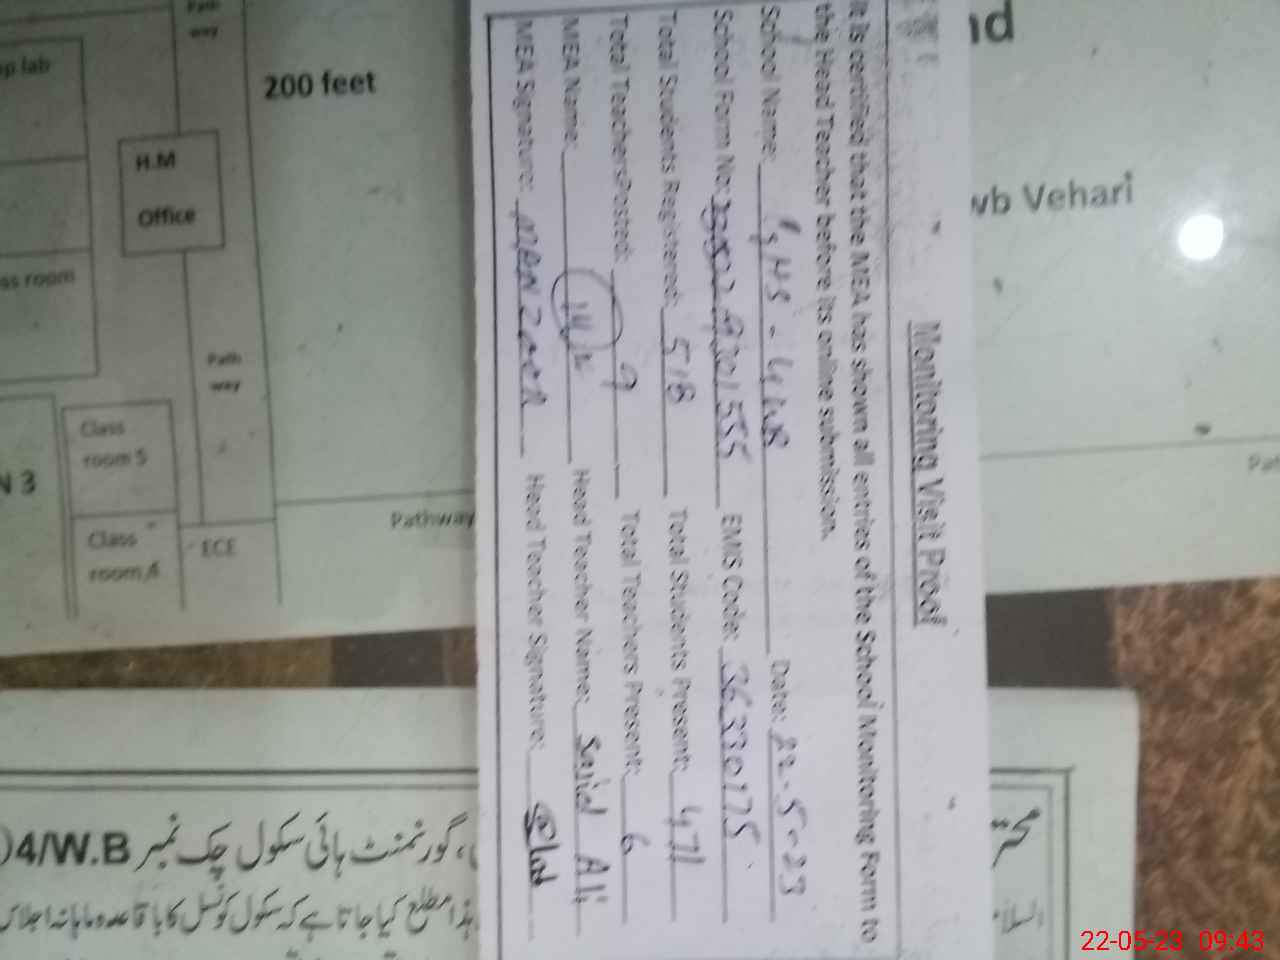 Monitoring Visit Proof
It is certified that the MEA has shown all entries of the School Monitoring Form to
the Head Teacher before its online submission.
School Name: GHS - 4/WB Date: 22-5-23
School Form No: EMIS Code: 36330175
Total Students Registered: 518 Total Students Present: 471
Total Teachers Posted: 9 Total Teachers Present: 6
MEA Name: Head Teacher Name: Sajid Ali
MEA Signature: MANZOOR Head Teacher Signature:
Path
way
p lab
200 feet
H.M
Office
ss room
Path
way
Class
room 5
N 3
Class
room 4
ECE
Pathway
nd
wb Vehari
Pat
گورنمنٹ ہائی سکول چک نمبر 4/W.B
مطلع کیا جاتا ہے کہ سکول کونسل کا باقاعدہ ماہانہ اجلاس
22-05-23 09:43